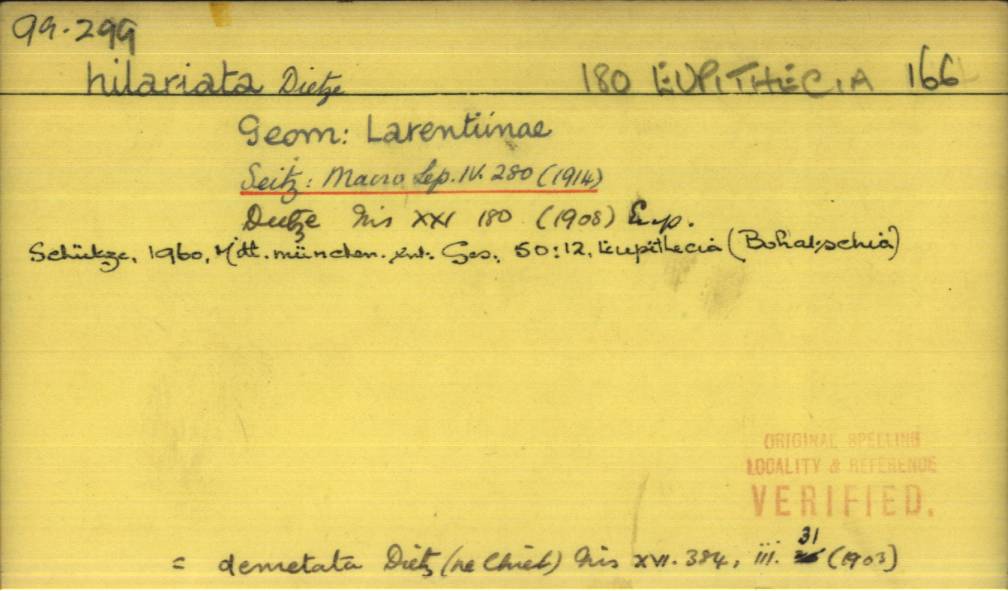 99.299
hilariata Dietze 180 EUPITHECIA 166
Geom: Larentiinae
Seitz: Macro Lep. IV. 280 (1914)
Dietze Iris XXI 180 (1908) Eup.
Schütze, 1960, Mitt. münchen. ent. Ges. 50:12, Eupithecia (Bohatschia)
ORIGINAL SPELLING
LOCALITY & REFERENCE
VERIFIED.
31
= demetata Dietz (ne Christ) Iris XVI. 384, iii. (1903)